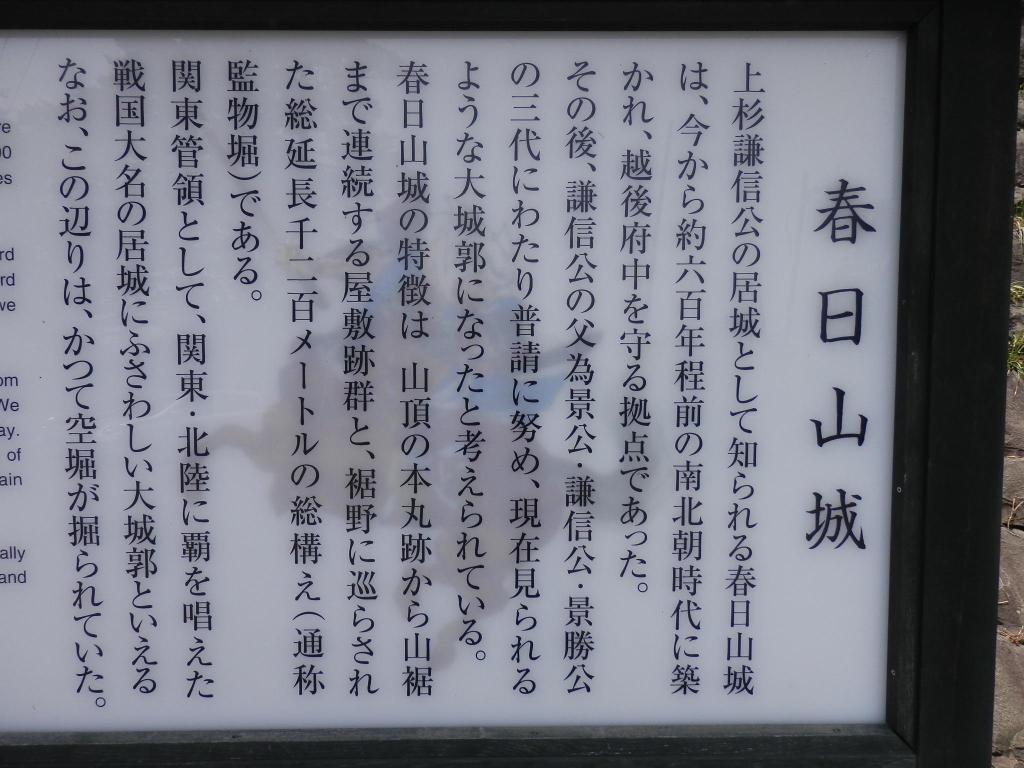 春日山城
上杉謙信公の居城として知られる春日山城
は、今から約六百年程前の南北朝時代に築
かれ、越後府中を守る拠点であった。
その後、謙信公の父為景公・謙信公・景勝公
の三代にわたり普請に努め、現在見られる
ような大城郭になったと考えられている。
春日山城の特徴は 山頂の本丸跡から山裾
まで連続する屋敷跡群と、裾野に巡らされ
た総延長千二百メートルの総構え(通称
監物堀)である。
関東管領として、関東・北陸に覇を唱えた
戦国大名の居城にふさわしい大城郭といえる
なお、この辺りは、かつて空堀が掘られていた。
rd
rd
we
om
We
ay.
of
ain
ally
and